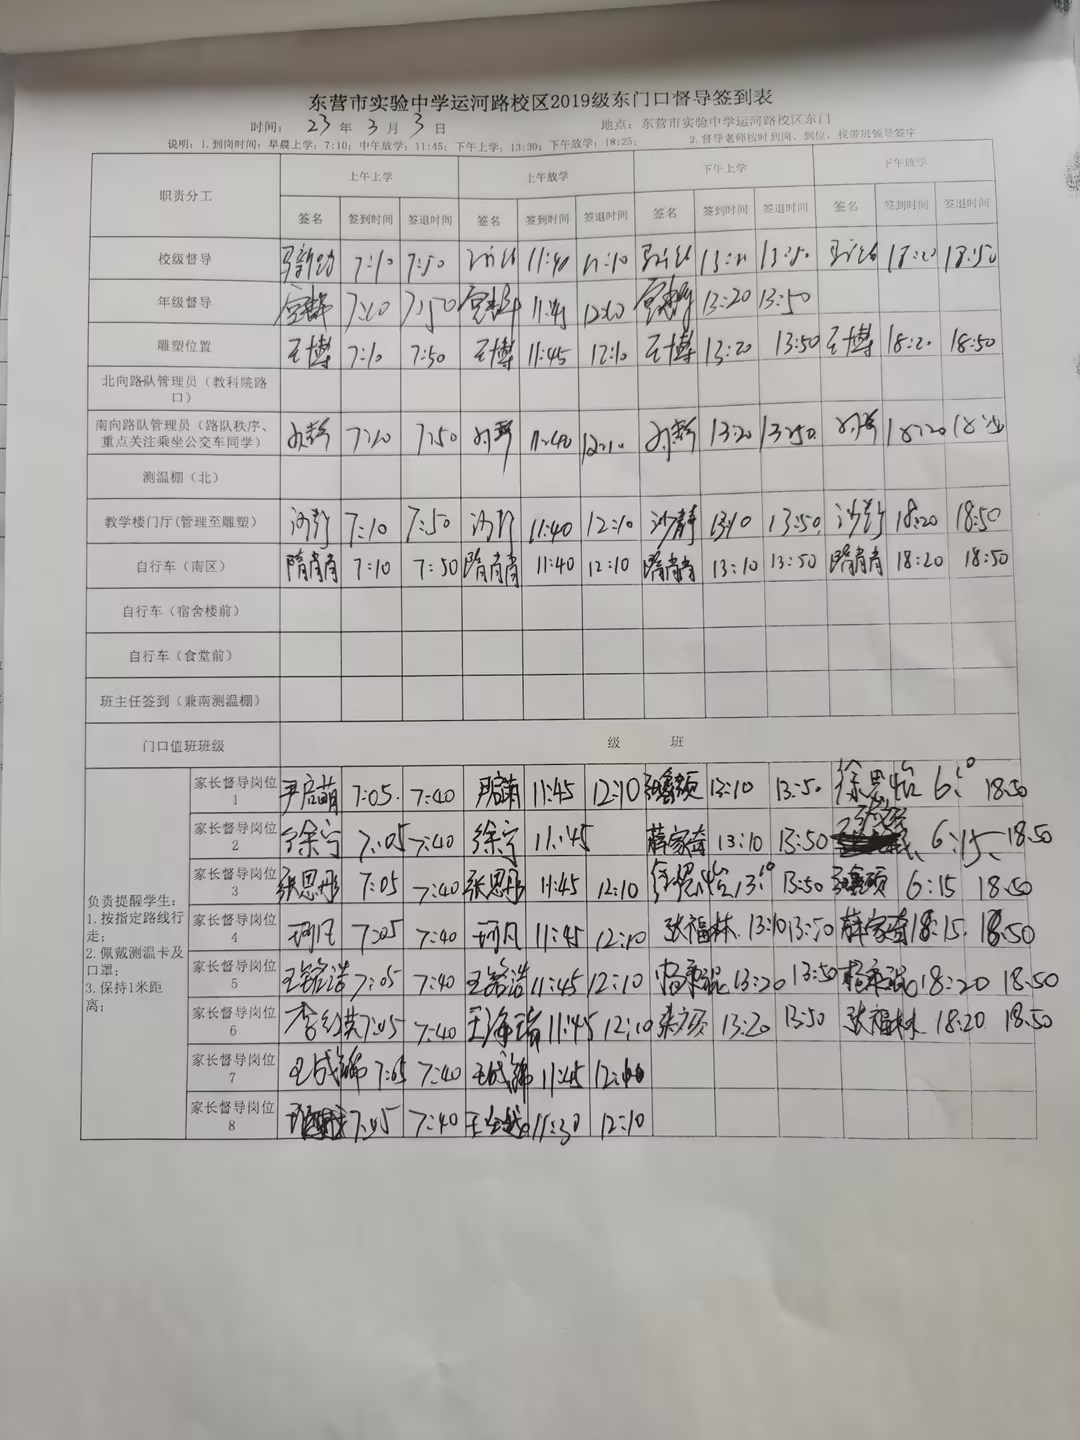 东营市实验中学运河路校区2019级东门口督导签到表
时间: 23 年 3 月 3 日 地点: 东营市实验中学运河路校区东门
说明: 1.到岗时间: 早晨上学: 7:10; 中午放学: 11:45; 下午上学: 13:30; 下午放学: 18:25; 2.督导老师按时到岗、到位、找带班领导签字
职责分工 上午上学 上午放学 下午上学 下午放学
签名 签到时间 签退时间 签名 签到时间 签退时间 签名 签到时间 签退时间 签名 签到时间 签退时间
校级督导 7:10 7:50 11:40 12:10 13:20 13:50 18:20 18:50
年级督导 7:10 7:50 11:45 12:10 13:20 13:50
雕塑位置 王博 7:10 7:50 王博 11:45 12:10 王博 13:20 13:50 王博 18:20 18:50
北向路队管理员（教科院路
口）
南向路队管理员（路队秩序、
重点关注乘坐公交车同学） 7:10 7:50 11:40 12:10 13:20 13:50 18:20
测温棚（北）
教学楼门厅(管理至雕塑) 7:10 7:50 11:40 12:10 沙静 13:10 13:50 18:20 18:50
自行车（南区） 隋肖肖 7:10 7:50 隋肖肖 11:40 12:10 隋肖肖 13:10 13:50 隋肖肖 18:20 18:50
自行车（宿舍楼前）
自行车（食堂前）
班主任签到（兼南测温棚）
门口值班班级 级 班
负责提醒学生:
1.按指定路线行
走;
2.佩戴测温卡及
口罩;
3.保持1米距
离;
家长督导岗位
1 尹启萌 7:05 7:40 尹启萌 11:45 12:10 13:10 13:50 徐思怡 18:50
家长督导岗位
2 徐宁 7:05 7:40 徐宁 11:45 薛家奇 13:10 13:50 6:15 18:50
家长督导岗位
3 张恩彤 7:05 7:40 张恩彤 11:45 12:10 13:10 13:50 6:15 18:50
家长督导岗位
4 珂凡 7:05 7:40 珂凡 11:45 12:10 张福林 13:10 13:50 薛家奇 18:15 18:50
家长督导岗位
5 王铭浩 7:05 7:40 王铭浩 11:45 12:10 13:20 13:50 18:20 18:50
家长督导岗位
6 7:05 7:40 11:45 12:10 13:20 13:50 张福林 18:20 18:50
家长督导岗位
7 7:05 7:40 11:45
家长督导岗位
8 7:05 7:40 11:30 12:10